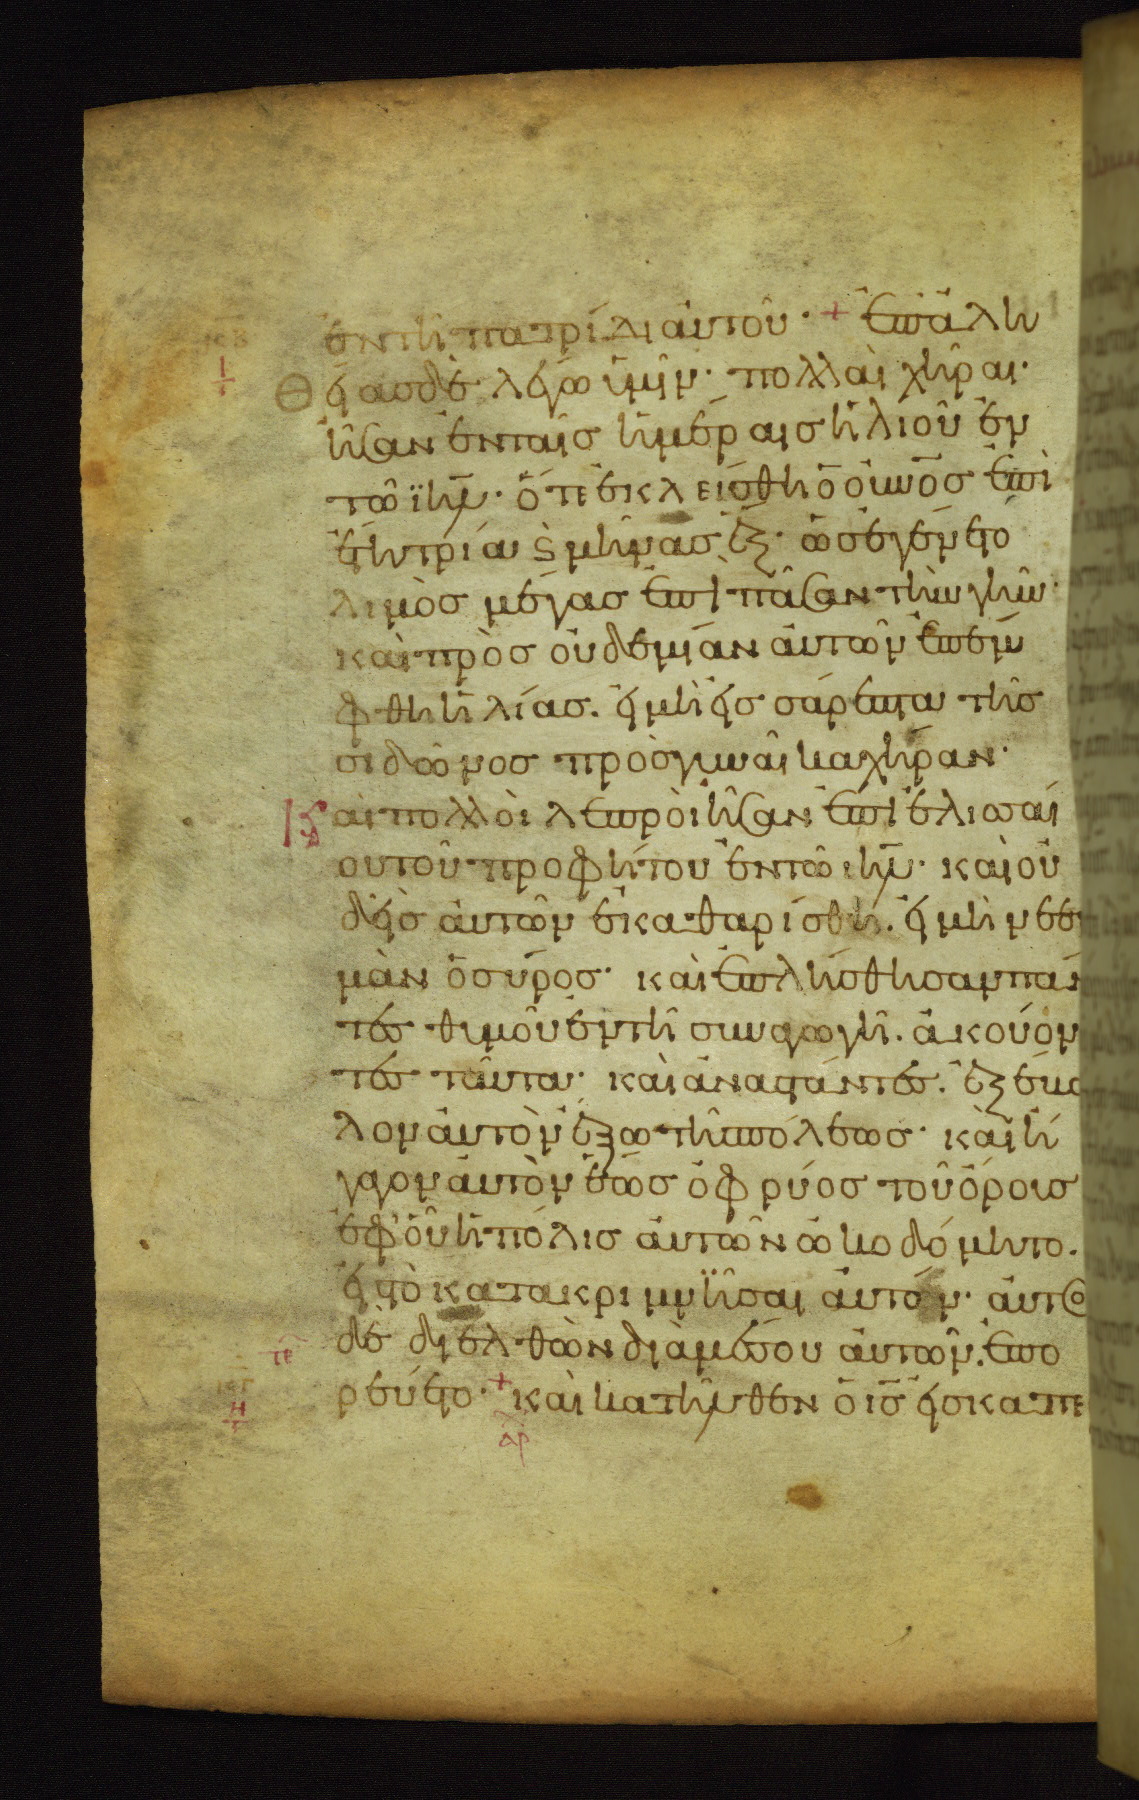 ἐν τῆ πατρίδι αὐτοῦ· + ἐπ ἀλη
Θείασ δὲ λέγω ὑμῖν· πολλαὶ χῆραι·
ἦσαν ἐν ταῖσ ἡμέραισ ἡλιοῦ ἐν
τῶ ϊηλ· ὅτε ἐκλείσθη ὁ οὐνοσ ἐπὶ
ἔτη τρία ϛ μῆνασ ἕξ· ὡσ ἐγένετο
λιμὸσ μέγασ ἐπὶ πᾶσαν τὴν γῆν·
καὶ πρὸσ οὐδεμίαν αὐτῶν ἐπέμ
φθη ἡλίασ. εἰ μὴ εἰσ σάρεπτα τῆσ
σιδῶνοσ πρὸσ γυναῖκα χήραν·
Καὶ πολλοὶ λεπροὶ ἦσαν ἐπὶ ἐλισσαί
ου τοῦ προφήτου ἐν τῶ ιηλ· καὶ οὐ
δεὶσ αὐτῶν ἐκαθαρίσθη. εἰ μὴ νεε
μὰν ὁ σύροσ· καὶ ἐπλήσθησαν πάν
τεσ θυμοῦ ἐν τῆ συναγωγῆ. ἀκούον
τεσ ταῦτα· καὶ ἀναστάντεσ. ἐξέβα
λον αὐτὸν ἔξω τῆσ πόλεωσ· καὶ ἤ
γαγον αὐτὸν ἕωσ ὀφρύοσ τοῦ ὄρουσ
ἐφ' οὗ ἡ πόλισ αὐτῶν ὠκοδόμητο.
εἰσ τὸ κατακριμνῆσαι αὐτόν· αὐτὸσ
τε δὲ διελθὼν διὰ μέσου αὐτῶν. ἐπο
ρεύετο· + καὶ κατῆλθεν ὁ ισ εἰσ καπε
αρ